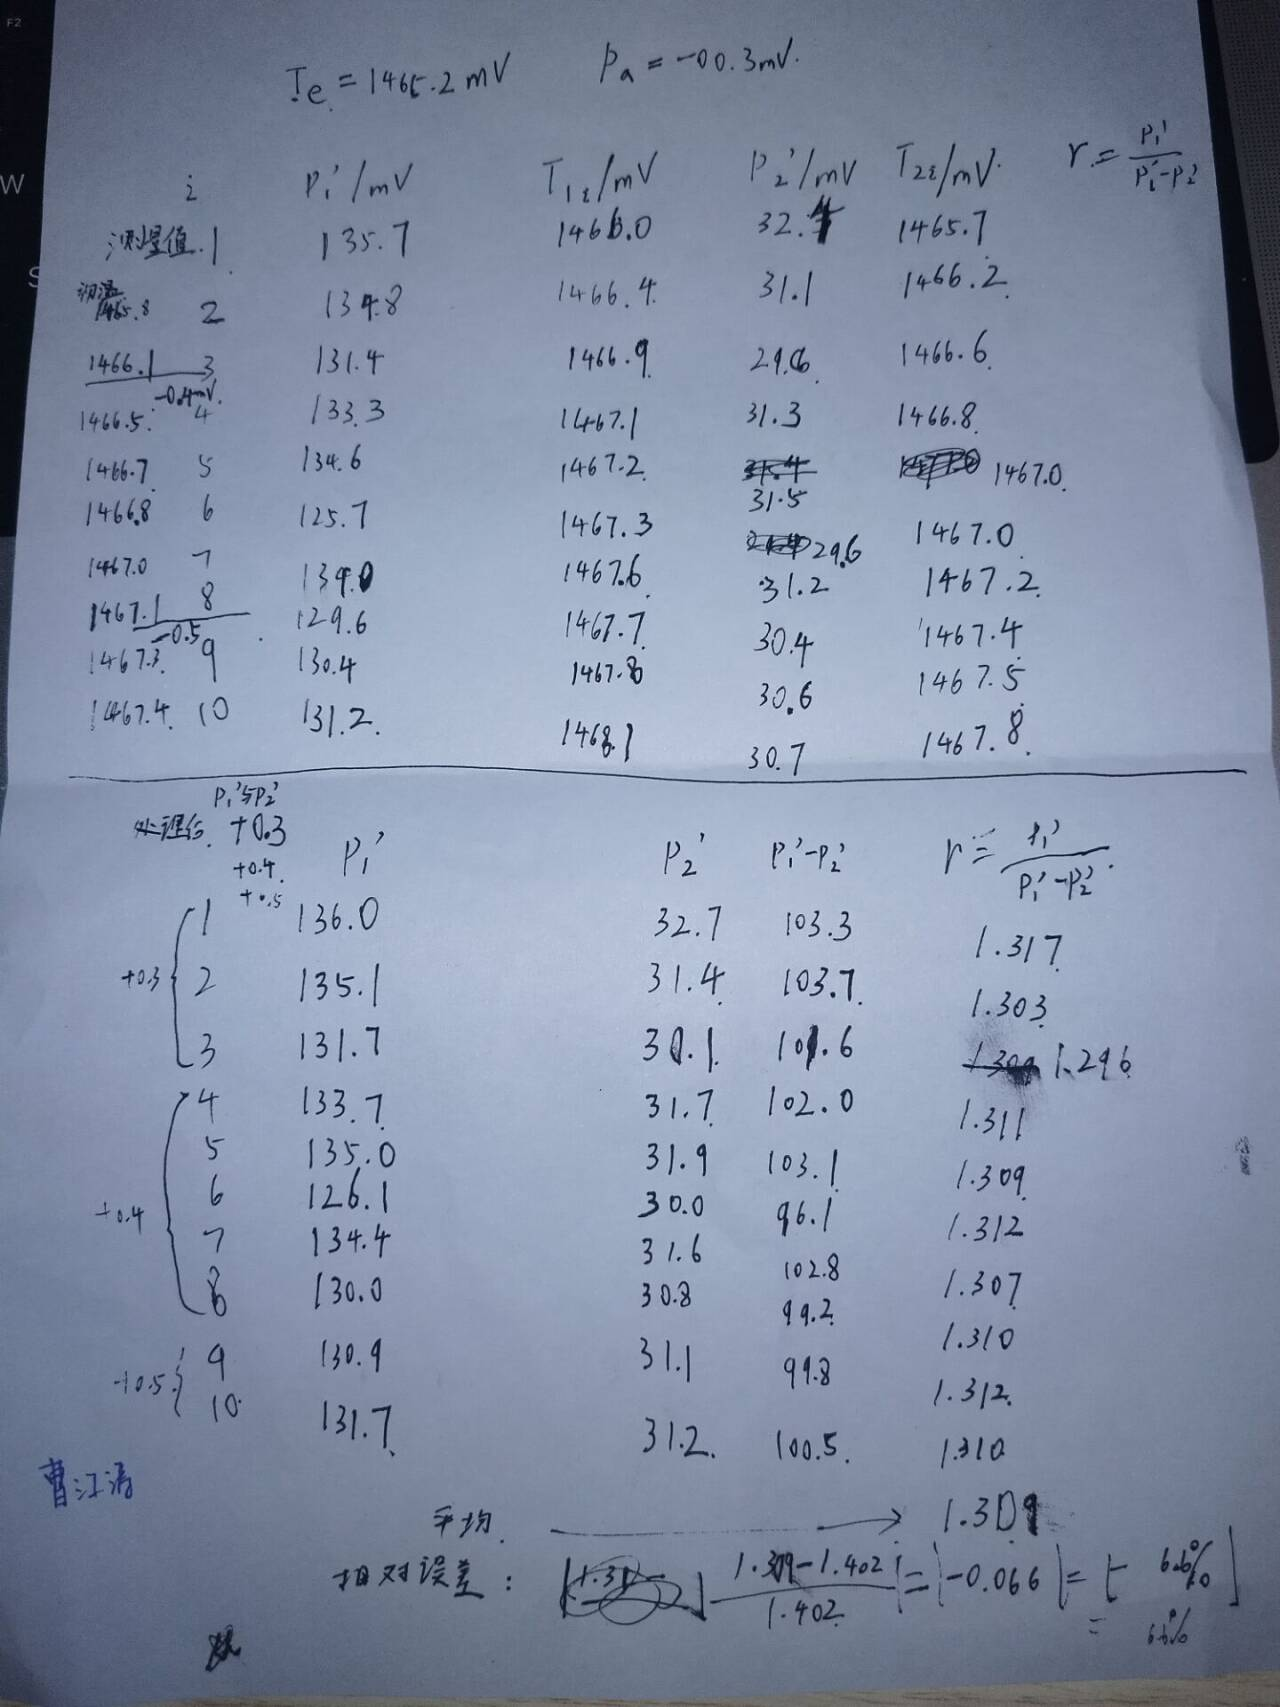 F2
W
S
Te = 1465.2mV Pa = -00.3mV.
i P₁'/mV T₁ᵢ/mV P₂'/mV T₂ᵢ/mV r = P₁'/P₁'-P₂'
测量值. 1 135.7 1466.0 32.4 1465.7
初温 1465.8 2 134.8 1466.4 31.1 1466.2
1466.1 3 131.4 1466.9 29.8 1466.6
-0.4mV.
1466.5 4 133.3 1467.1 31.3 1466.8
1466.7 5 134.6 1467.2 31.5 1467.0
1466.8 6 125.7 1467.3 29.6 1467.0
1467.0 7 134.0 1467.6 31.2 1467.2
1467.1 8 129.6 1467.7 30.4 1467.4
-0.5
1467.3 9 130.4 1467.8 30.6 1467.5
1467.4 10 131.2 1468.1 30.7 1467.8
P₁'与P₂'
处理后. +0.3 P₁' P₂' P₁'-P₂' r = P₁'/P₁'-P₂'
+0.4
+0.5
1 136.0 32.7 103.3 1.317
+0.3 2 135.1 31.4 103.7 1.303
3 131.7 30.1 101.6 1.296
4 133.7 31.7 102.0 1.311
5 135.0 31.9 103.1 1.309
+0.4 6 126.1 30.0 96.1 1.312
7 134.4 31.6 102.8 1.307
8 130.0 30.8 99.2 1.310
+0.5 9 130.9 31.1 99.8 1.312
10 131.7 31.2 100.5 1.310
曹江涛
平均. → 1.309
相对误差: |1.309-1.402/1.402| = |-0.066| = 6.6%
= 6.6%